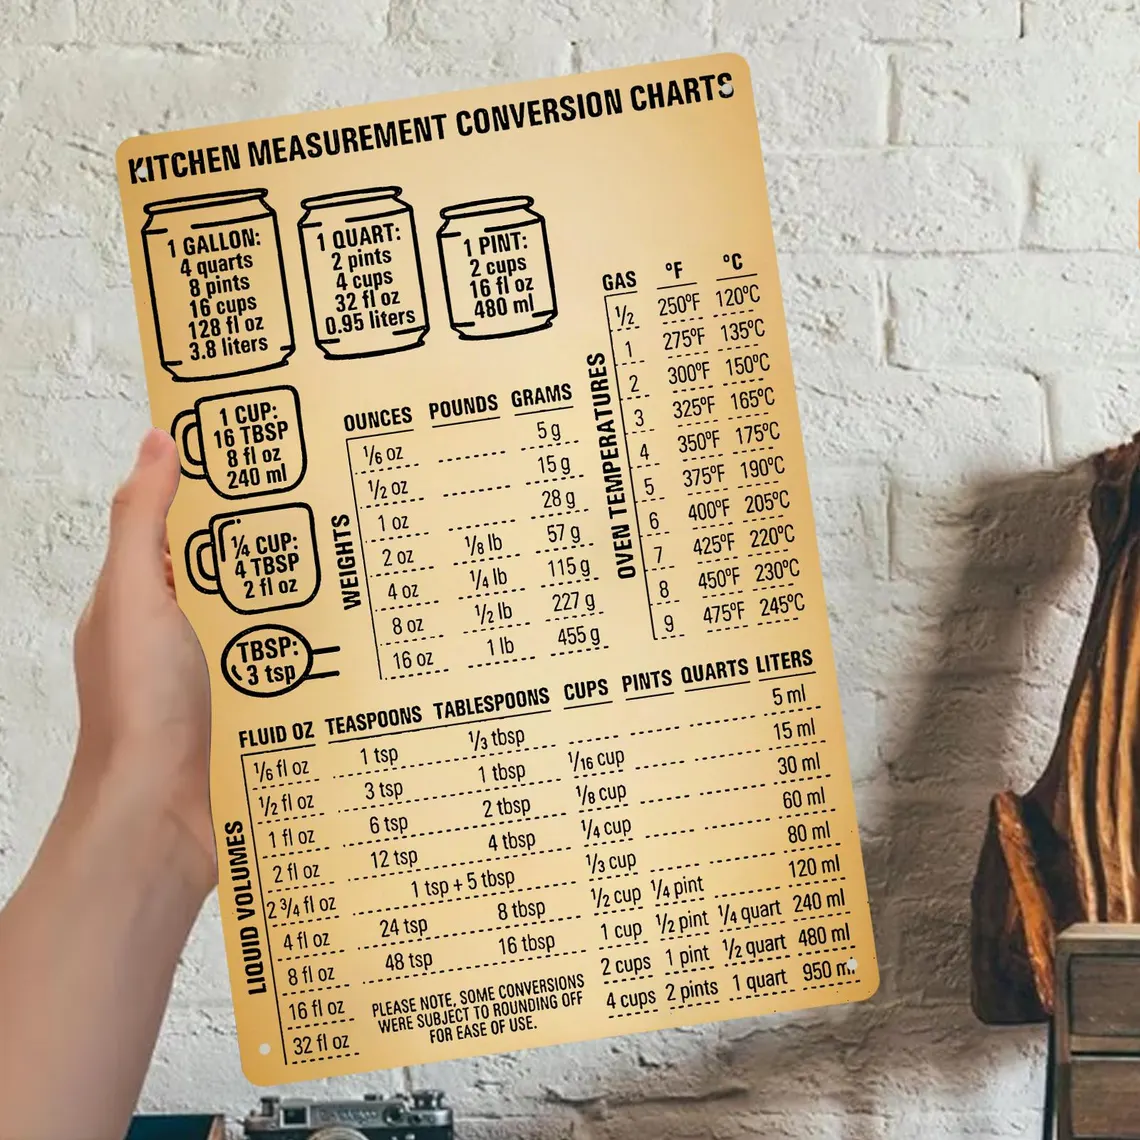 KITCHEN MEASUREMENT CONVERSION CHARTS
1 GALLON:
4 quarts
8 pints
16 cups
128 fl oz
3.8 liters
1 QUART:
2 pints
4 cups
32 fl oz
0.95 liters
1 PINT:
2 cups
16 fl oz
480 ml
1 CUP:
16 TBSP
8 fl oz
240 ml
¼ CUP:
4 TBSP
2 fl oz
TBSP:
3 tsp
WEIGHTS
OUNCES POUNDS GRAMS
1/6 oz 5 g
½ oz 15 g
1 oz 28 g
2 oz ⅛ lb 57 g
4 oz ¼ lb 115 g
8 oz ½ lb 227 g
16 oz 1 lb 455 g
OVEN TEMPERATURES
GAS ºF ºC
½ 250ºF 120ºC
1 275ºF 135ºC
2 300ºF 150ºC
3 325ºF 165ºC
4 350ºF 175ºC
5 375ºF 190ºC
6 400ºF 205ºC
7 425ºF 220ºC
8 450ºF 230ºC
9 475ºF 245ºC
LIQUID VOLUMES
FLUID OZ TEASPOONS TABLESPOONS CUPS PINTS QUARTS LITERS
1/6 fl oz 1 tsp ⅓ tbsp 5 ml
½ fl oz 3 tsp 1 tbsp 1/16 cup 15 ml
1 fl oz 6 tsp 2 tbsp ⅛ cup 30 ml
2 fl oz 12 tsp 4 tbsp ¼ cup 60 ml
2 ¾ fl oz 1 tsp + 5 tbsp ⅓ cup 80 ml
4 fl oz 24 tsp 8 tbsp ½ cup ¼ pint 120 ml
8 fl oz 48 tsp 16 tbsp 1 cup ½ pint ¼ quart 240 ml
16 fl oz 2 cups 1 pint ½ quart 480 ml
32 fl oz 4 cups 2 pints 1 quart 950 ml
PLEASE NOTE, SOME CONVERSIONS
WERE SUBJECT TO ROUNDING OFF
FOR EASE OF USE.